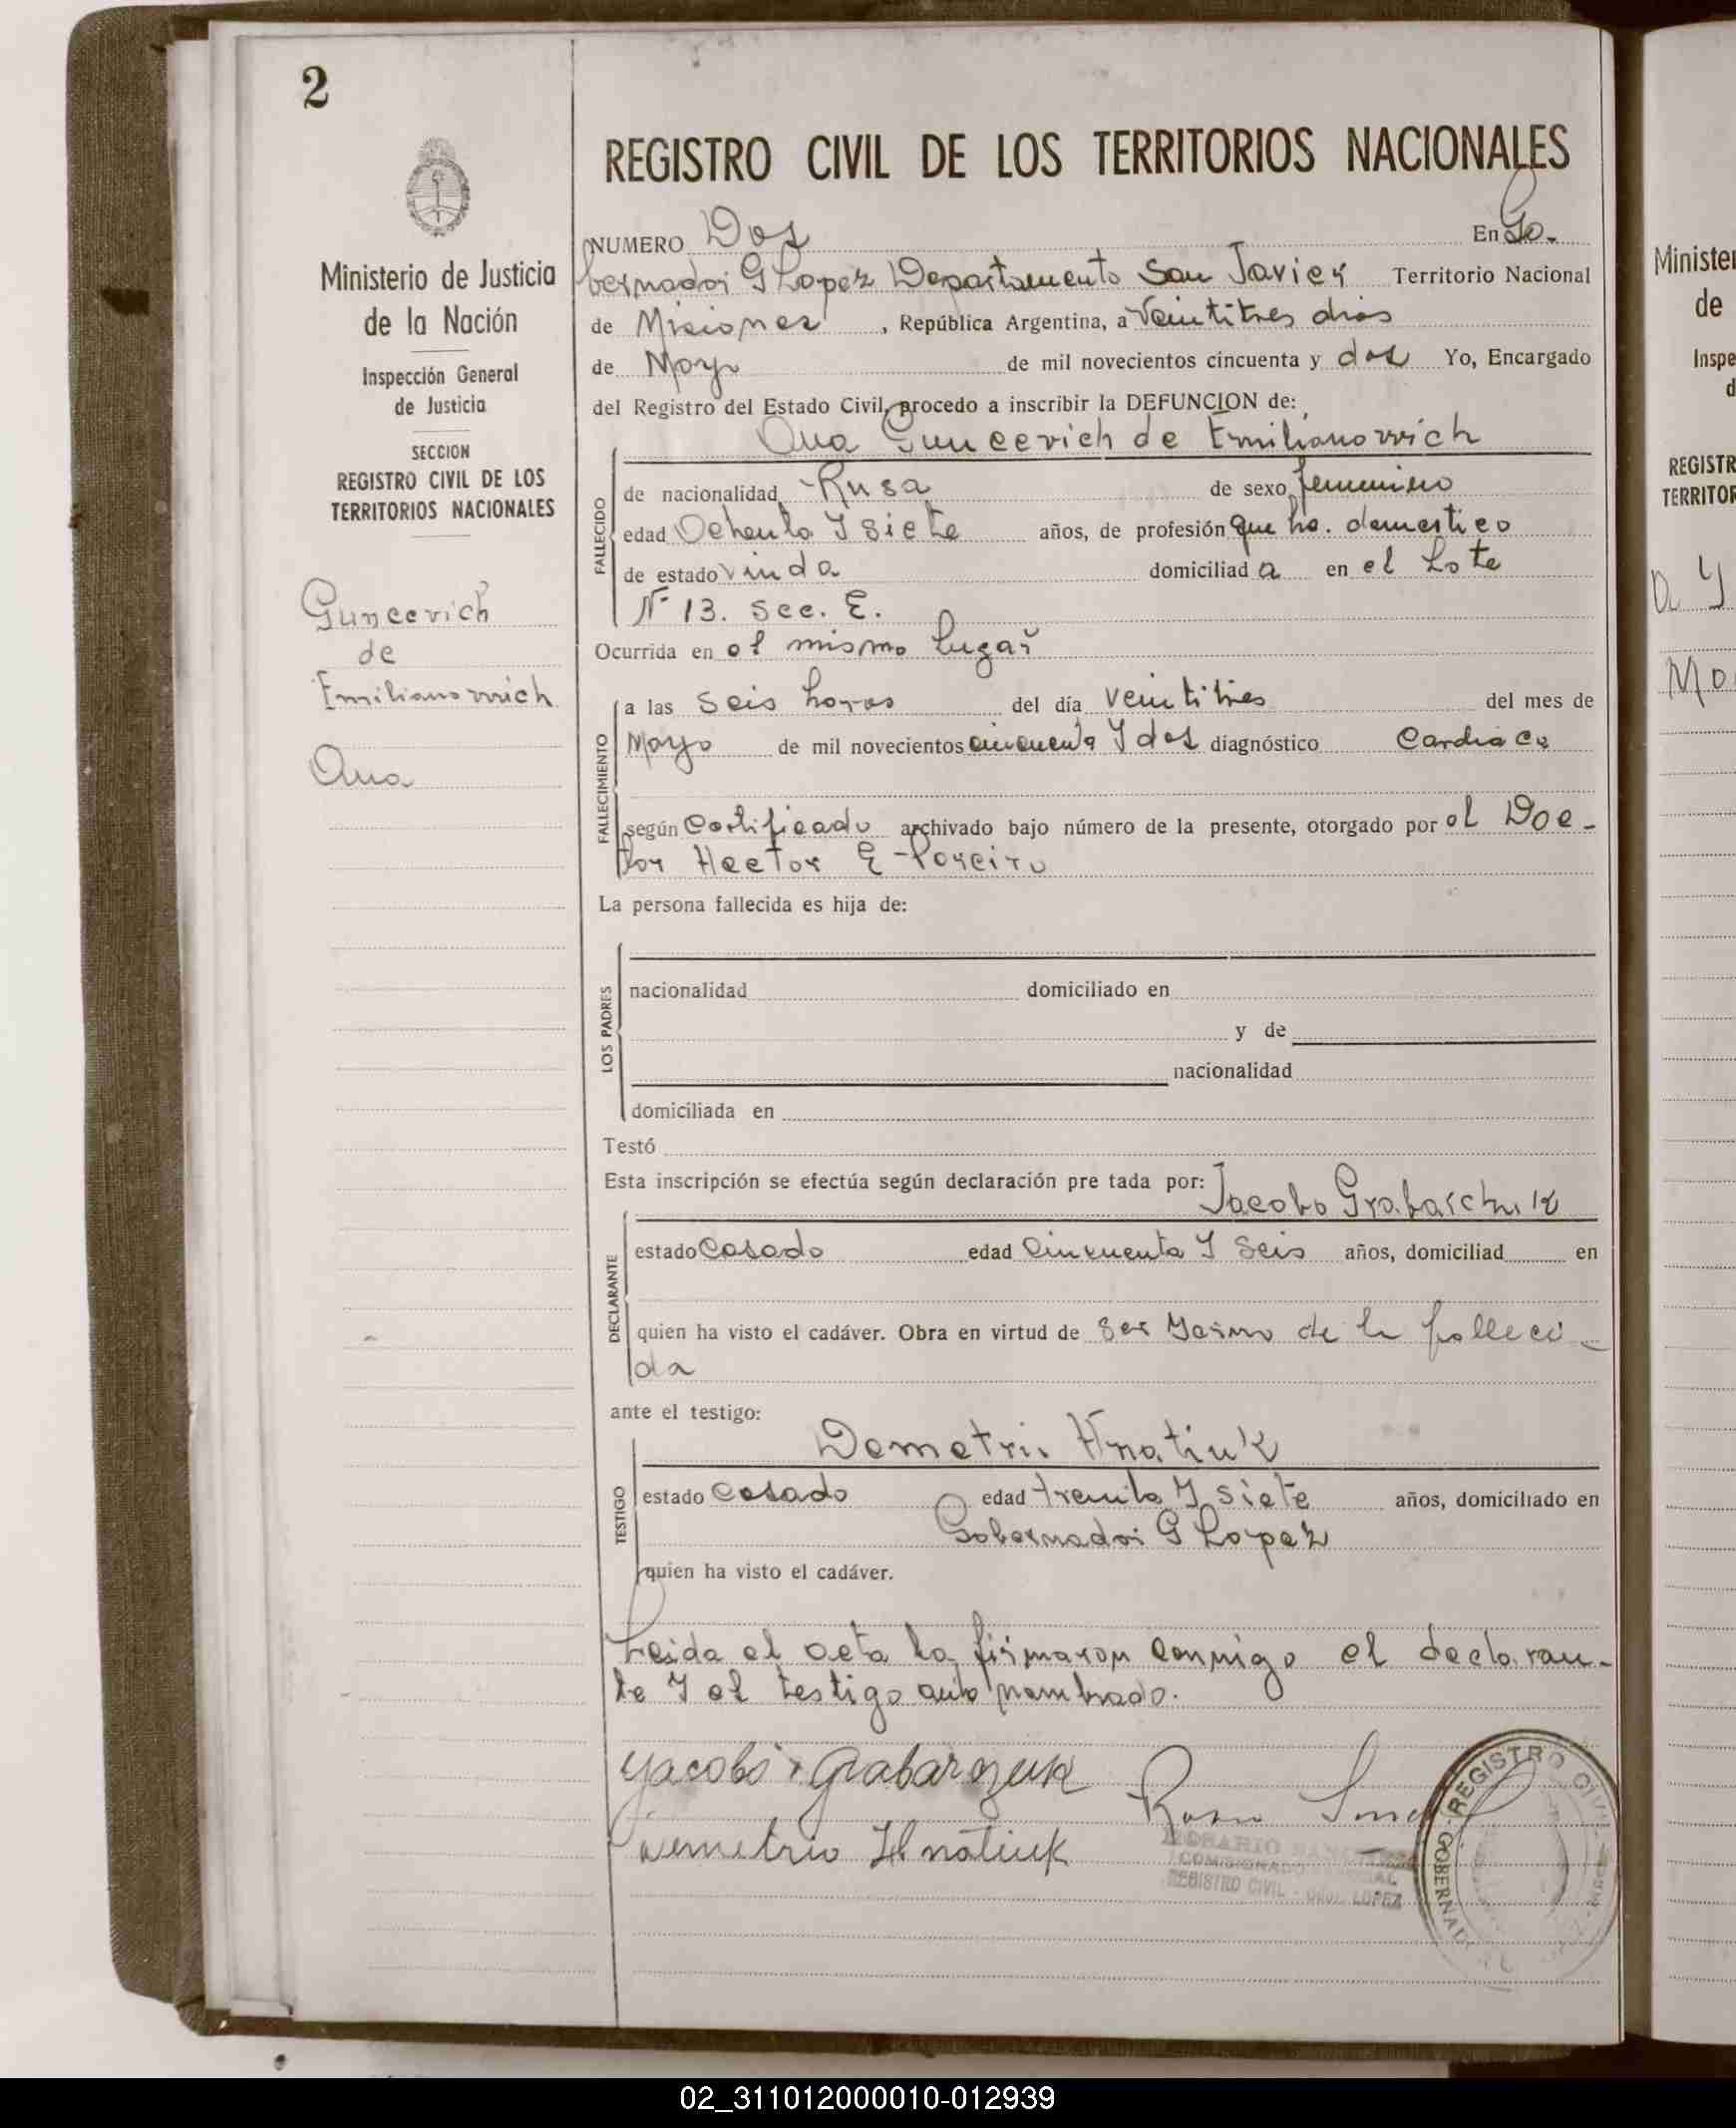 2
REGISTRO CIVIL DE LOS TERRITORIOS NACIONALES
Ministerio de Justicia
de la Nación
Inspección General
de Justicia
SECCION
REGISTRO CIVIL DE LOS
TERRITORIOS NACIONALES
Guncevich
de
Emilianowich
Ana
NUMERO Dos En Go-
bernador G Lopez Departamento San Javier Territorio Nacional
de Misiones, República Argentina, a Veintitres dias
de Mayo de mil novecientos cincuenta y dos Yo, Encargado
del Registro del Estado Civil, procedo a inscribir la DEFUNCION de:
Ana Guncevich de Emilianowich
FALLECIDO
de nacionalidad Rusa de sexo femenino
edad Ochenta y siete años, de profesión que ha. domestico
de estado viuda domiciliad a en el Lote
Nº 13. Sec. E.
Ocurrida en el mismo lugar
FALLECIMIENTO
a las seis horas del día veintitres del mes de
Mayo de mil novecientos cincuenta y dos diagnóstico Cardiaca
según Certificado archivado bajo número de la presente, otorgado por el Doc-
tor Hector E
La persona fallecida es hija de:
LOS PADRES
nacionalidad domiciliado en
y de
nacionalidad
domiciliada en
Testó
Esta inscripción se efectúa según declaración pre tada por: Jacobo Grabarchuk
DECLARANTE
estado casado edad Cincuenta y seis años, domiciliad en
quien ha visto el cadáver. Obra en virtud de ser Yerno de la falleci-
da
ante el testigo:
Demetrio Hnatiuk
TESTIGO
estado casado edad treinta y siete años, domiciliado en
Gobernador G Lopez
quien ha visto el cadáver.
Leida el acta la firmaron conmigo el declaran-
te y el testigo ante nombrado.
Yacobo Grabarczuk
Demetrio Hnatiuk
REGISTRO CIVIL - GDOR. LOPEZ
REGISTRO CIVIL
02_311012000010-012939